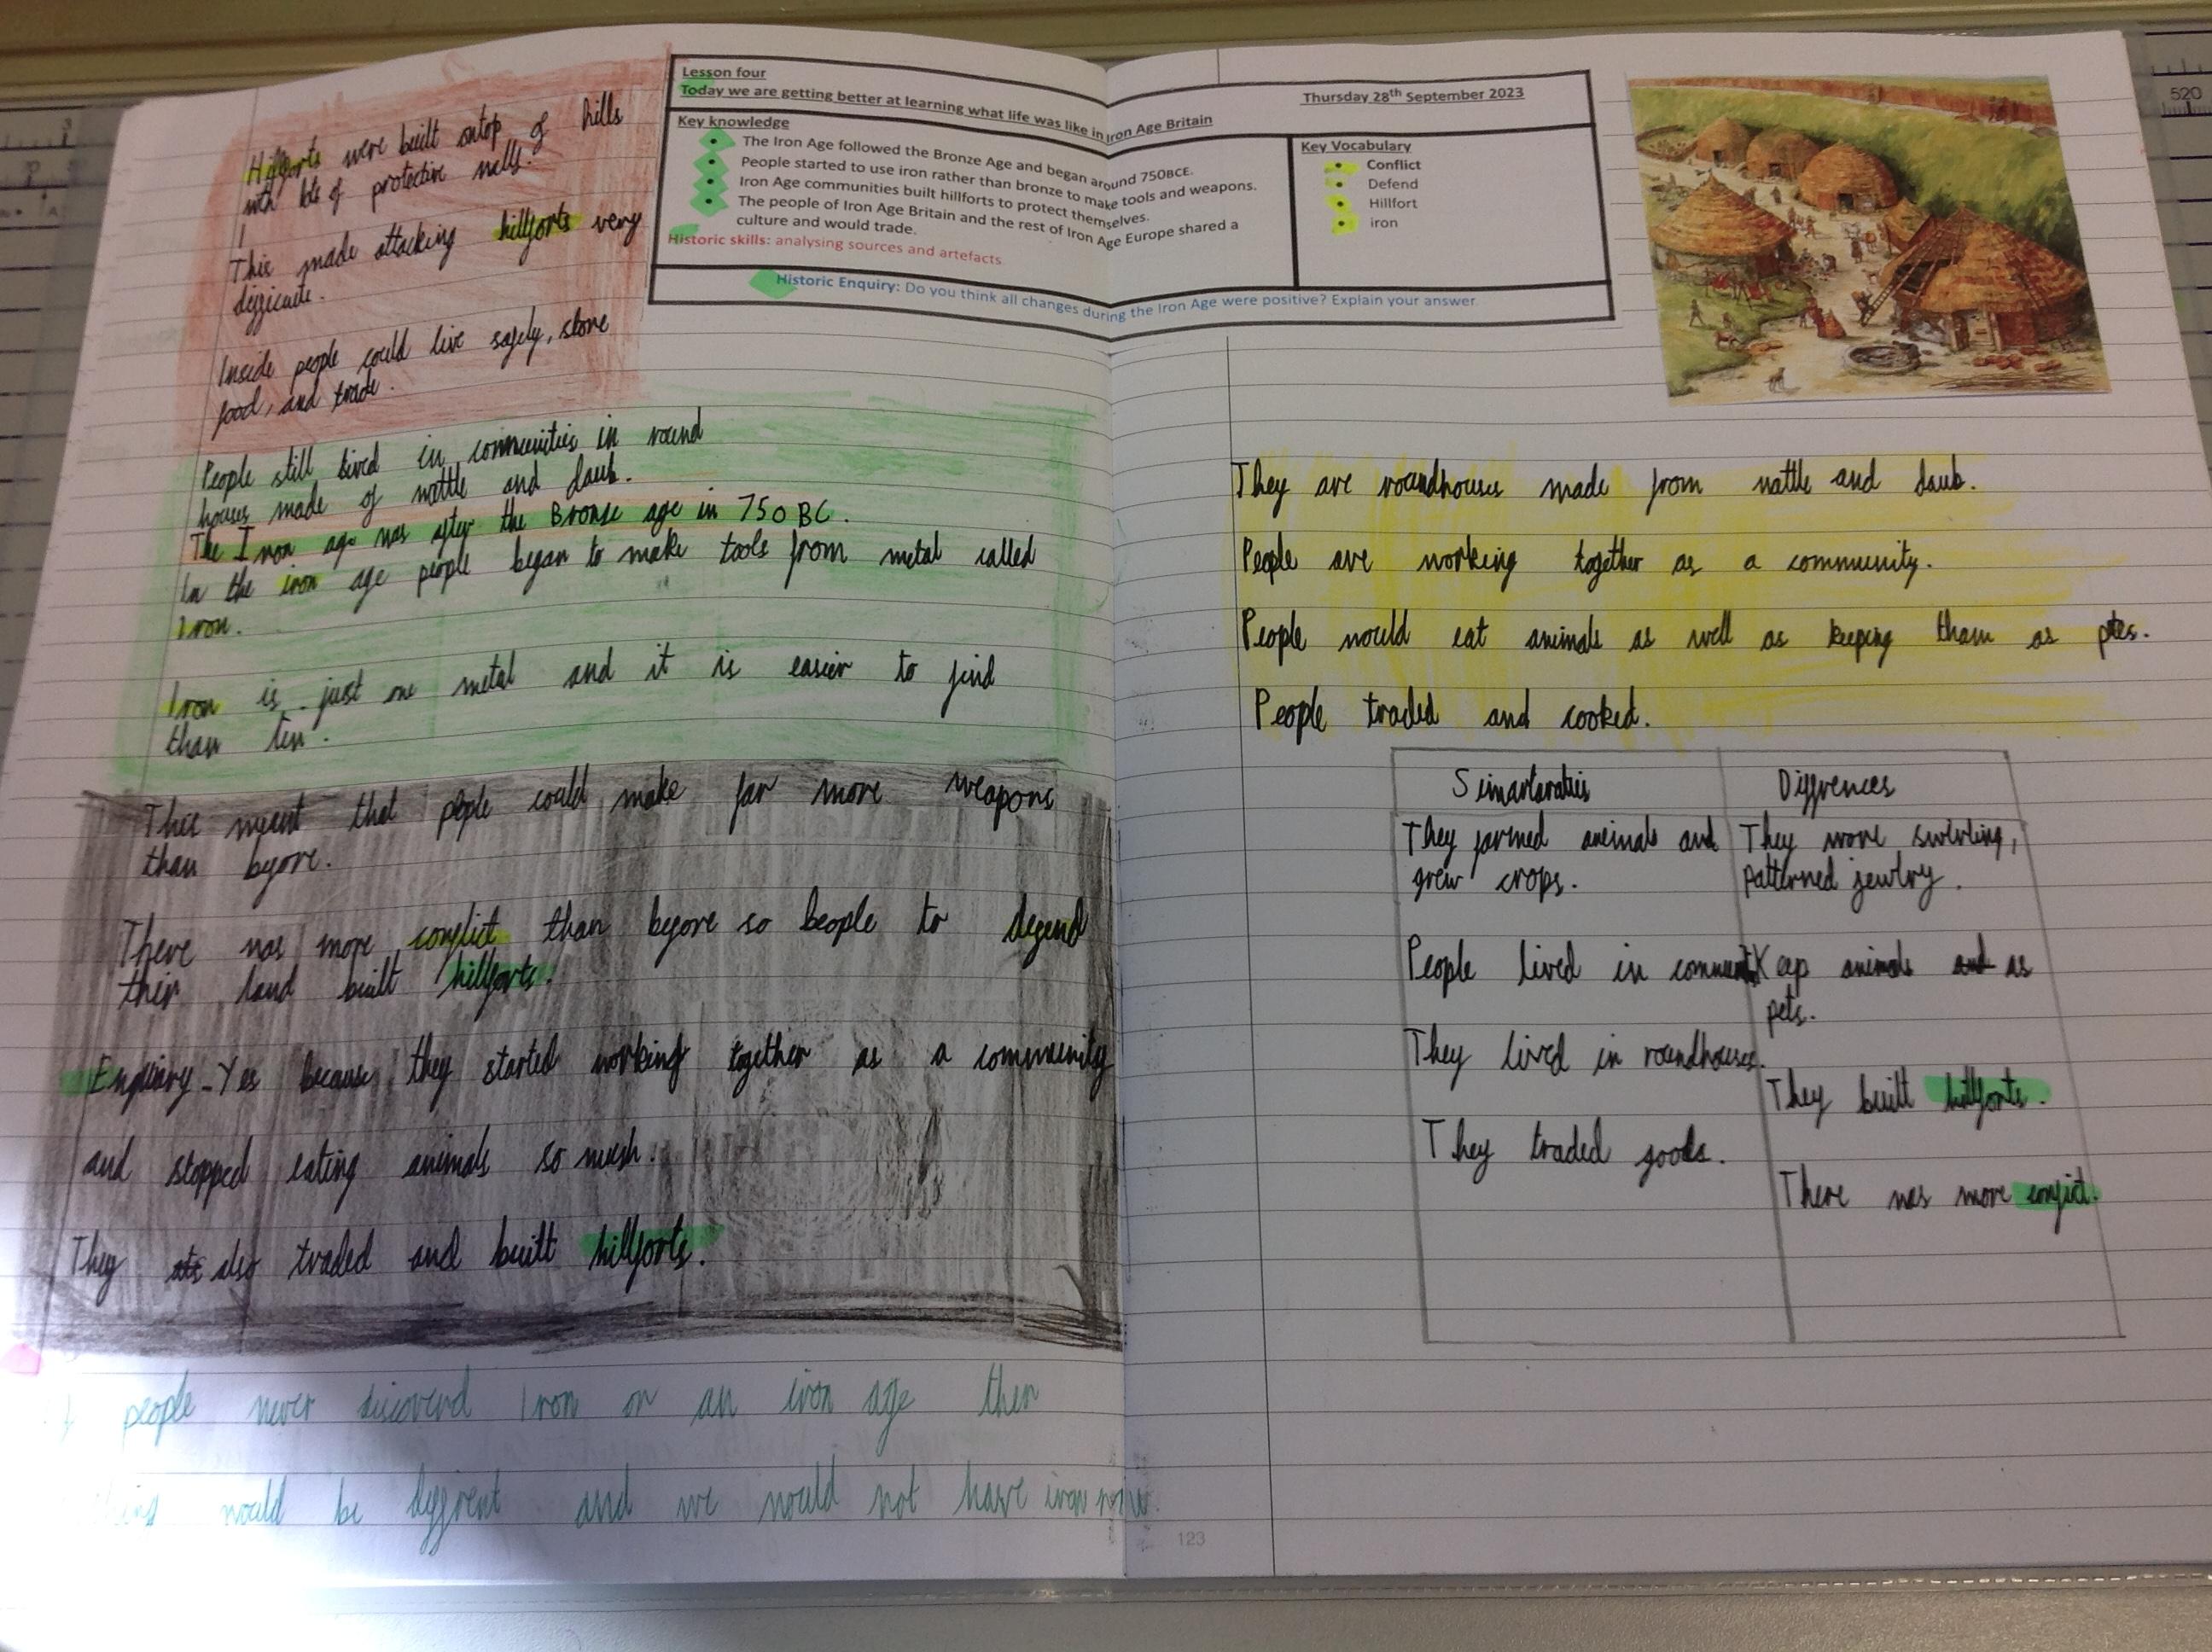 Lesson four
Today we are getting better at learning what life was like in Iron Age Britain
Thursday 28th September 2023
Key knowledge
The Iron Age followed the Bronze Age and began around 750BCE.
People started to use iron rather than bronze to make tools and weapons.
Iron Age communities built hillforts to protect themselves.
The people of Iron Age Britain and the rest of Iron Age Europe shared a
culture and would trade.
Historic skills: analysing sources and artefacts
Key Vocabulary
Conflict
Defend
Hillfort
iron
Historic Enquiry: Do you think all changes during the Iron Age were positive? Explain your answer.
Hillforts were built ontop of hills
with lots of protective walls.
This made attacking hillforts very
difficulte.
Inside people could live safely, store
food, and trade.
People still lived in communities in round
houses made of wattle and daub.
The Iron age was after the Bronse age in 750 BC.
In the iron age people began to make tools from metal called
Iron.
Iron is just one metal and it is easier to find
than tin.
This meant that pepple could make far more weapons
than before.
There was more conflict than before so beople to defend
thir land built hillforts.
Enquiry - Yes because they started working together as a community
and stopped eating animals so mush.
They also traded and built hillforts.
people never discoverd Iron or an iron age then
would be diffrent and we would not have iron now.
They are roundhouses made from wattle and daub.
People are working together as a community.
People would eat animals as well as keeping tham as ptes.
People traded and cooked.
Diffrences
They farmed animals and
grew crops.
People lived in
They lived in roundhouses.
They traded goods.
They wore swirling,
patterned jewlry.
Kep animals as
pets.
They built hillforts.
There was more conflict.
123
520